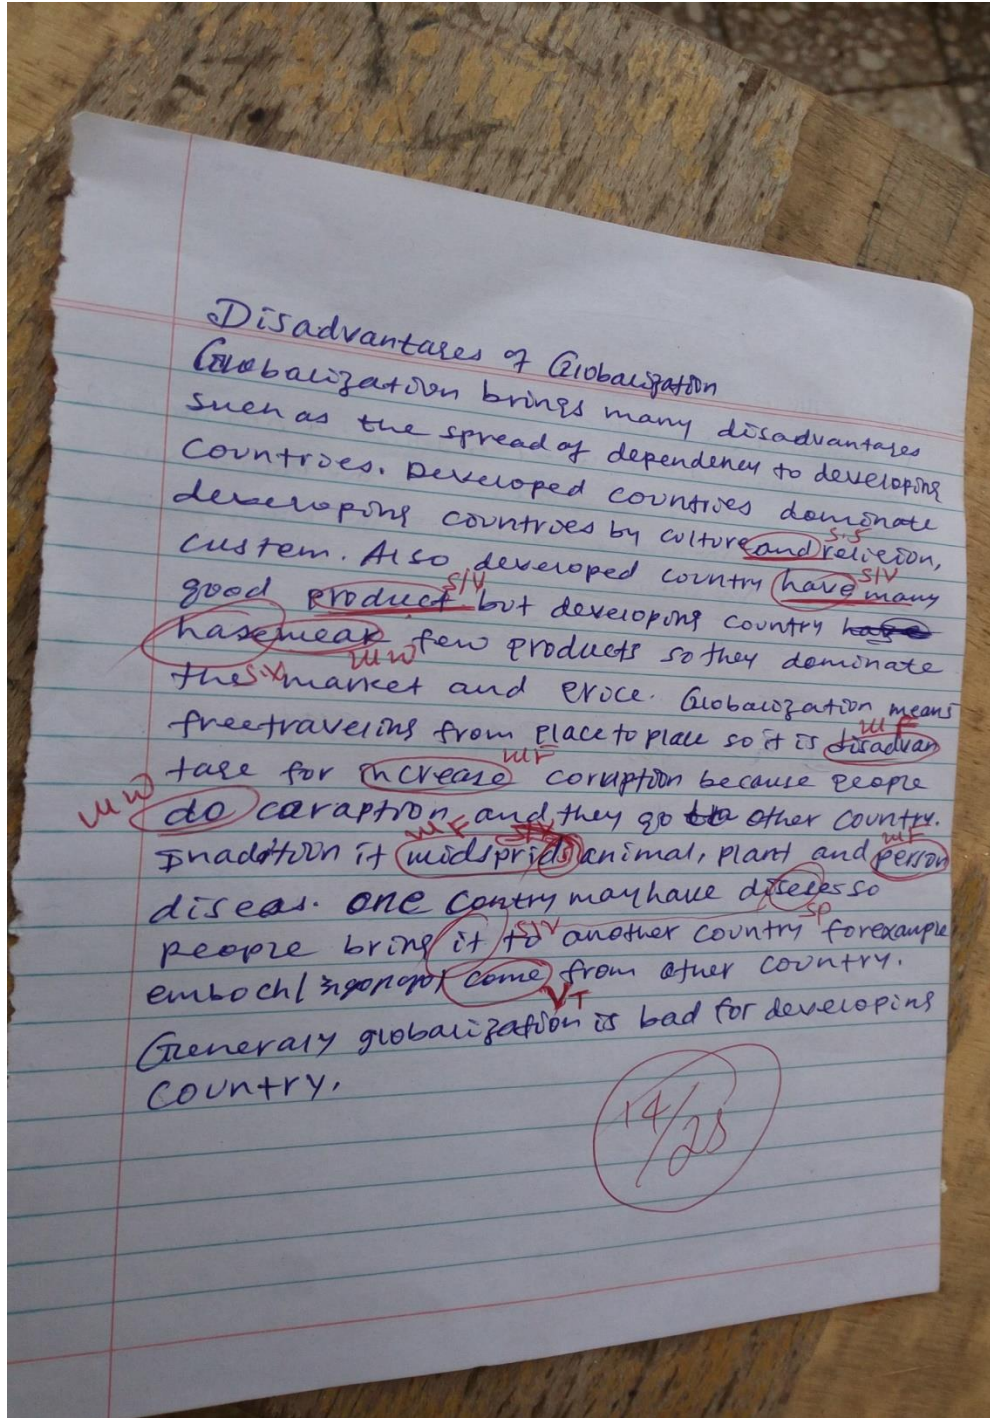 Disadvantages of Globalization
Globalization brings many disadvantages
such as the spread of dependency to developing
countries. Developed countries dominate
developing countries by culture and religion,
S.S
custem. Also developed country have many
S/V
good product but developing country have
S/V
has weak few products so they dominate
WW
the market and price. Globalization means
S.V
freetraveling from place to place so it is disadvan
WF
tage for increase coruption because people
WF
do caraption and they go to other country.
WW
Inadition it midsprids animal, plant and person
WF
WF
diseas. one contry may have diseses so
SP
people bring it to another country forexample
S/V
emboch/ come from other country.
VT
Generaly globalization is bad for developing
country.
14/25